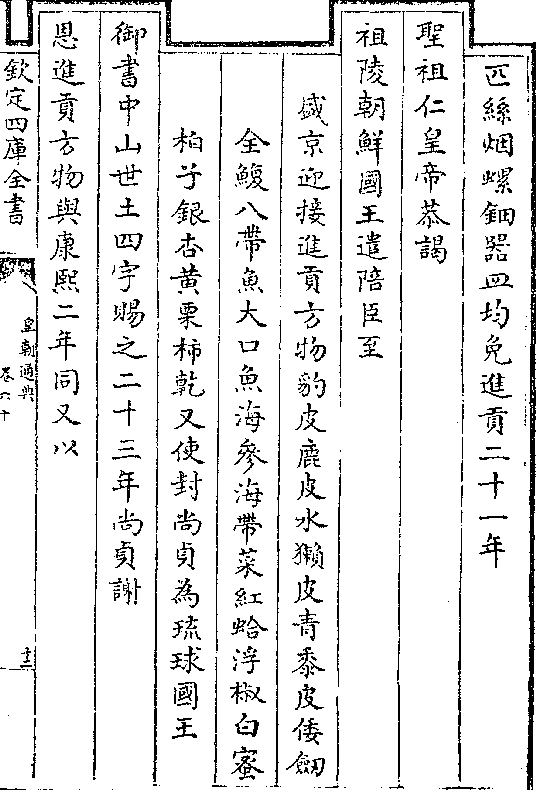 匹絲烟螺鈿器皿均免進貢二十一年
聖祖仁皇帝恭謁
祖陵朝鮮國王遣陪臣至
盛京迎接進貢方物豹皮鹿皮水獺皮青黍皮倭劒
全鰒八帶魚大口魚海參海帶菜紅蛤浮椒白蜜
柏子銀杏黄栗柿乾又使封尚貞為琉球國王
御書中山世土四字賜之二十三年尚貞謝
恩進貢方物與康熙二年同又以
欽定四庫全書
皇朝通典
卷六十
十三